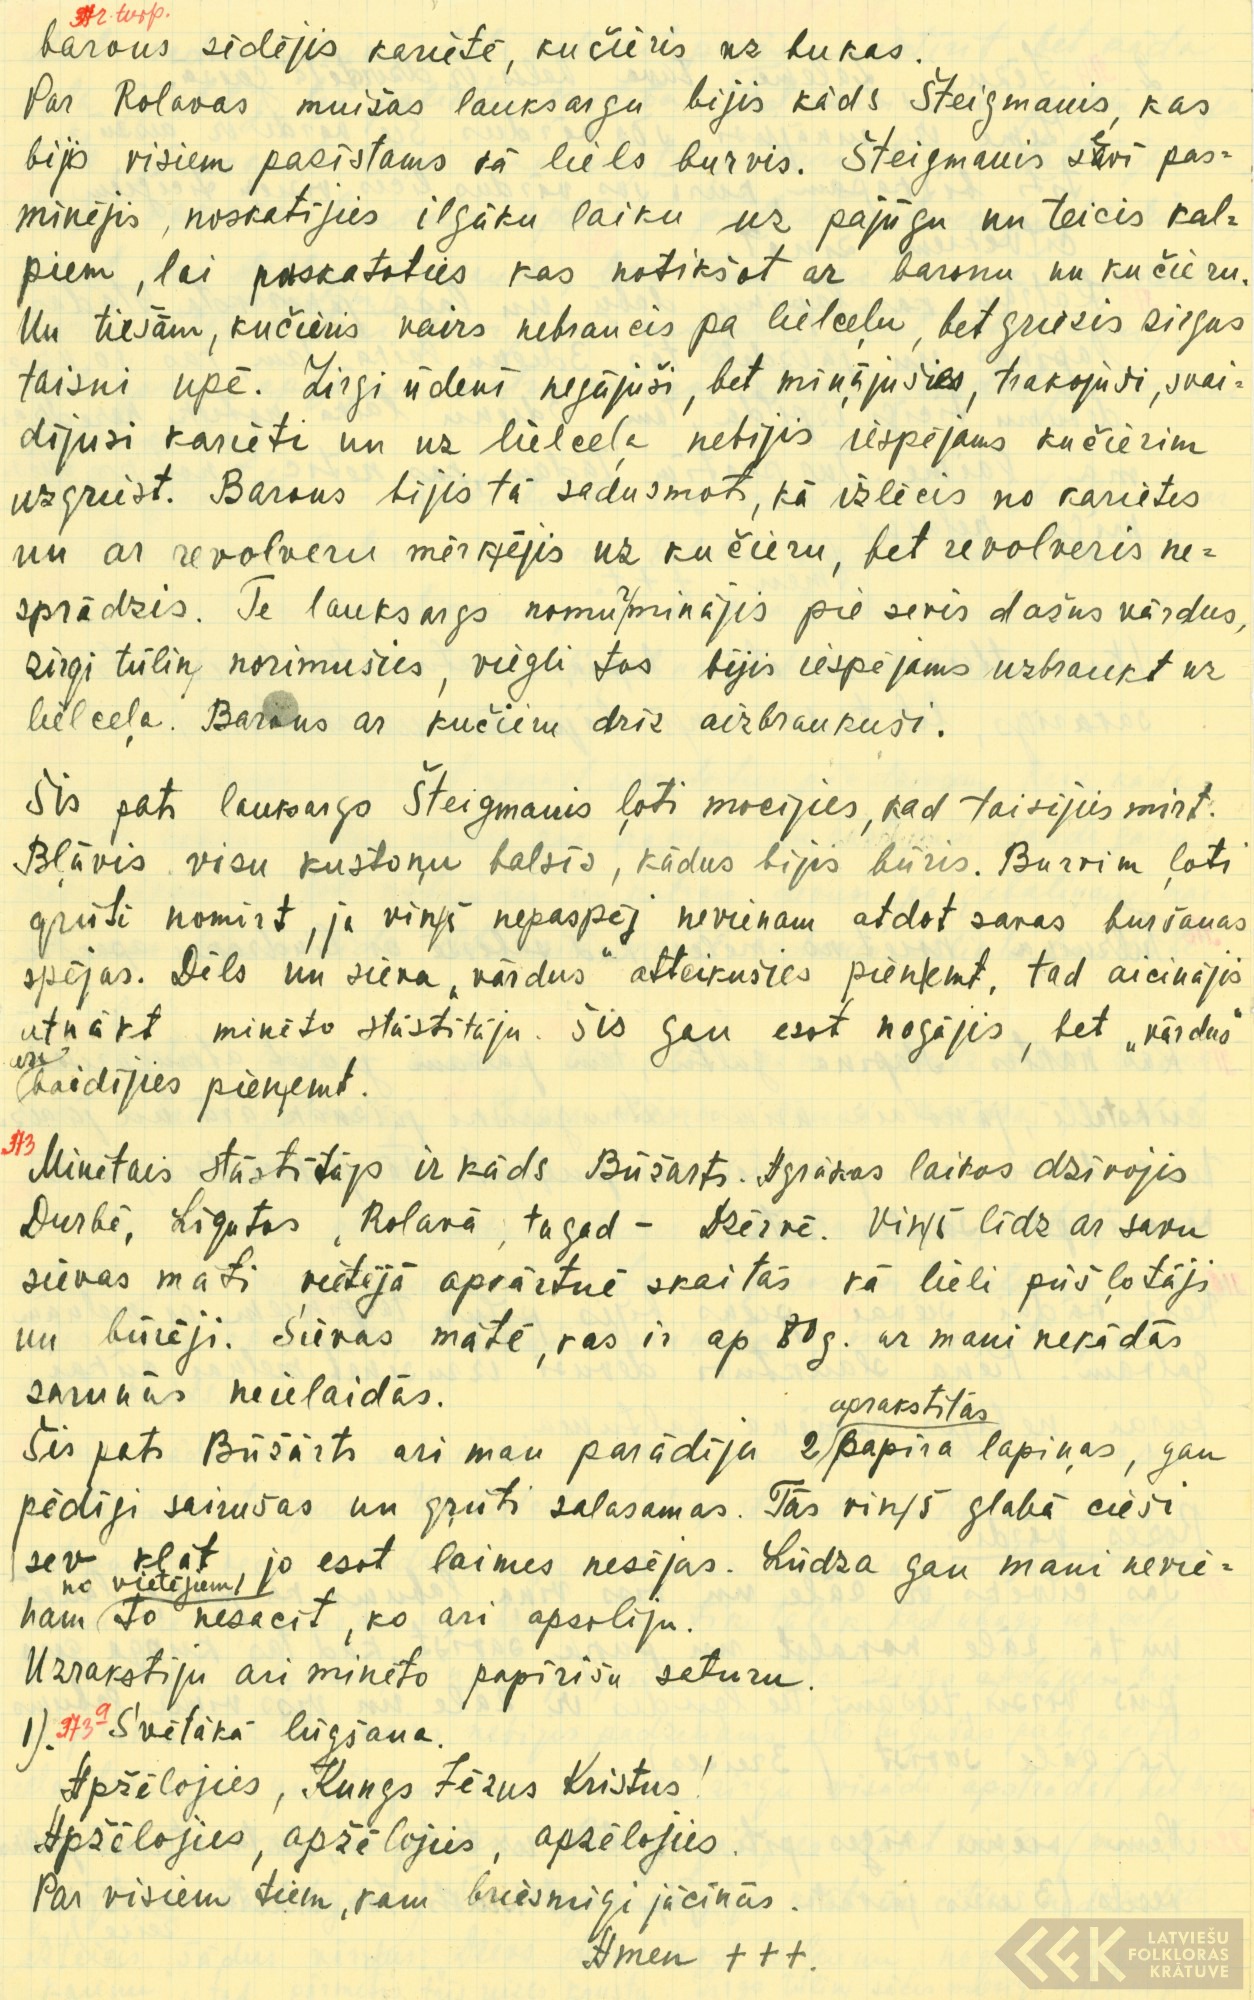 372 turp.
barons sēdējis kariētē, kučieris uz bukas.
Par Rolavas muižas lauksargu bijis kāds Šteigmanis, kas
bijis visiem pazīstams kā liels burvis. Šteigmanis sēvi pas-
minējis, noskatījies ilgāku laiku uz pajūgu un teicis kal-
piem, lai noskatoties kas notikšot ar baronu un kučieru.
Un tiešām, kučieris vairs nebraucis pa lielceļu, bet griezis zirgus
taisni upē. Zirgi ūdenī negājuši, bet mīņājušies, trakojuši, svai-
dījuši kariēti un uz lielceļa nebijis iespējams kučierim
uzgriezt. Barons bijis tā sadusmots, kā izlēcis no kariētes
un ar revolveru mērķējis uz kučieru, bet revolveris ne-
sprādzis. Te lauksargs nomurminājis pie sevis dažus vārdus,
zirgi tūliņ norimušies, viegli tos bijis iespējams uzbraukt uz
lielceļa. Barons ar kučieru drīz aizbraukuši.
Šis pats lauksargs Šteigmanis ļoti mocījies, kad taisījies mirt.
Bļāvis visu kustoņu balsīs, kādus bijis būris. Burvim ļoti
grūti nomirt, ja viņš nepaspēj nevienam atdot savas buršanas
spējas. Dēls un sieva „vārdus" atteikušies pieņemt, tad aicinājis
atnākt minēto stāstītāju. Šis gan esot nogājis, bet „vārdus"
baidījies pieņemt.
373 Minētais stāstītājs ir kāds Būšarts. Agrākos laikos dzīvojis
Durbē, Līgutos, Rolavā, tagad – Dzērvē. Viņš līdz ar savu
sievas māti vietējā apkārtnē skaitās kā lieli pūšļotāji
un būrēji. Sievas māte, kas ir ap 80g. ar mani nekādās
sarunās neielaidās.
Šis pats Būšarts arī man parādīja 2 aprakstītas papīra lapiņas, gan
pēdīgi sairušas un grūti salasāmas. Tās viņš glabā cieši
sev klāt, jo esot laimes nesējas. Lūdza gan mani nevie-
nam no vietējiem to nesacīt, ko arī apsolīju.
Uzrakstīju arī minēto papīrīšu saturu.
1). 373a Svētākā lūgšana.
Apžēlojies, Kungs Jēzus Kristus!
Apžēlojies, apžēlojies, apžēlojies.
Par visiem tiem, kam briesmīgi jācīnās.
Amen + + +.
LATVIEŠU
FOLKLORAS
KRĀTUVE